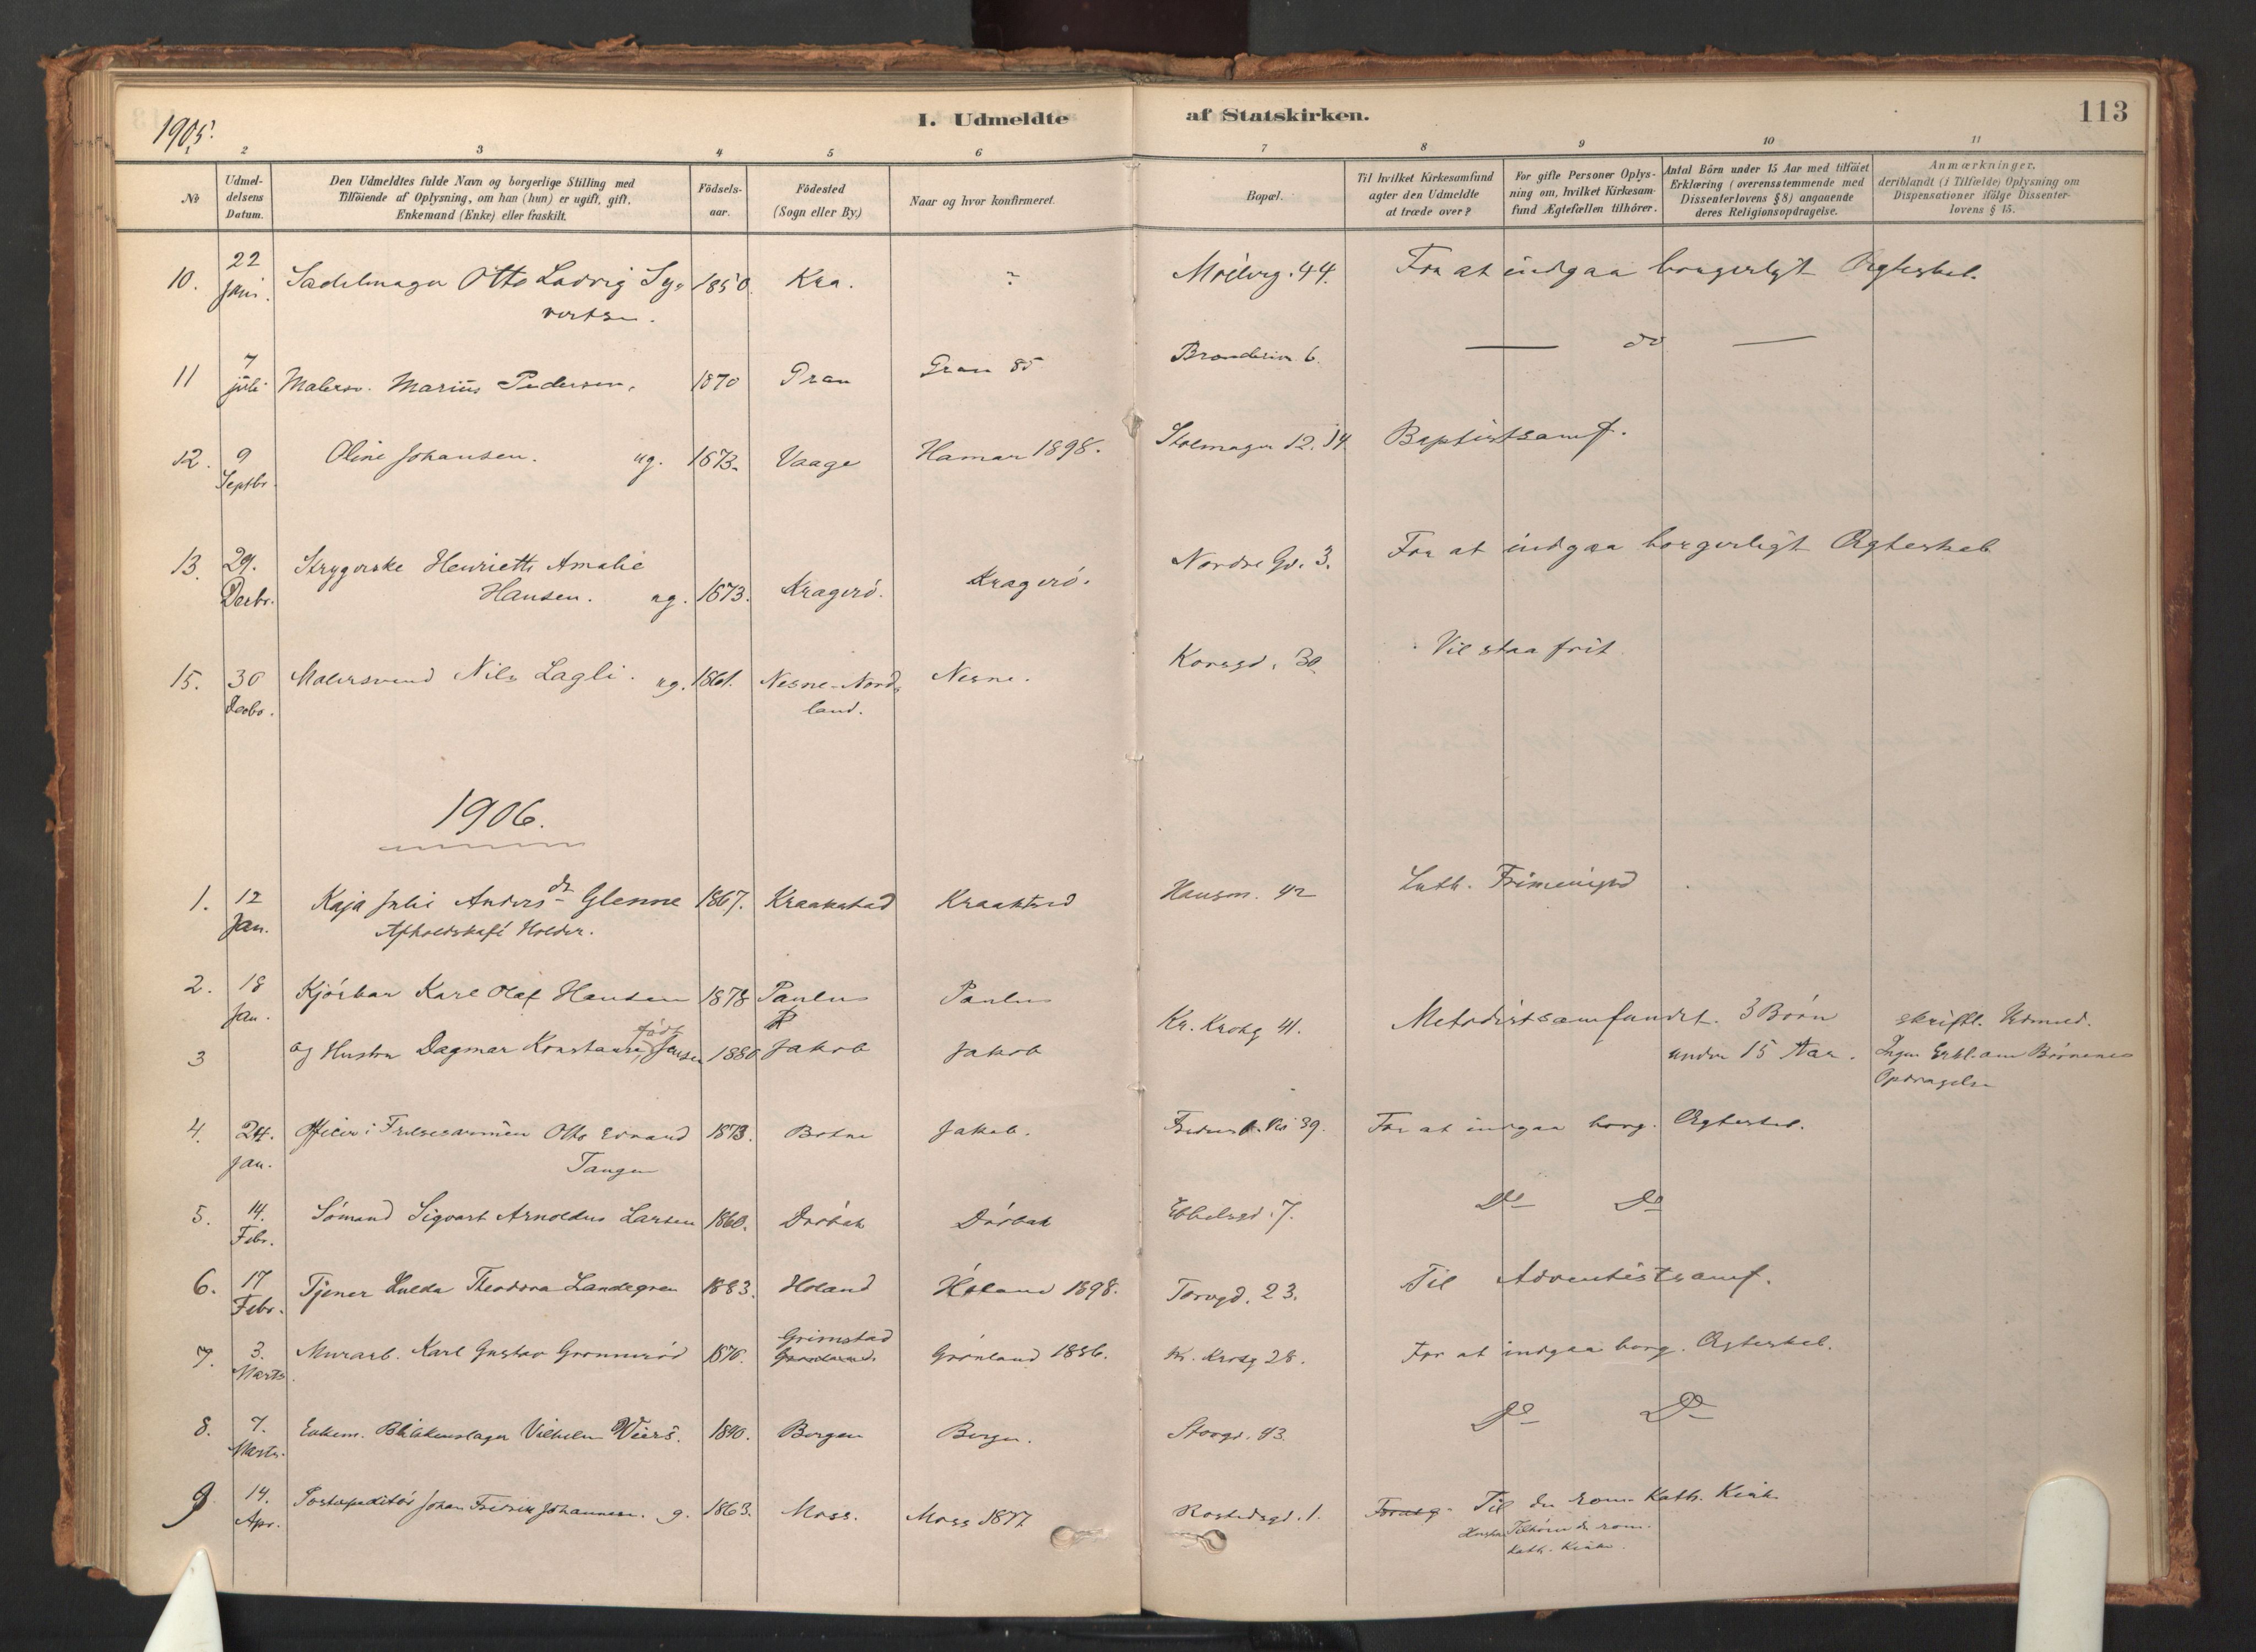 1905.
I. Udmeldte af Statskirken. 113
1 2 3 4 5 6 7 8 9 10 11
No
Udmeldelsens Datum.
Den Udmeldtes fulde Navn og borgerlige Stilling med
Tilföiende af Oplysning, om han (hun) er ugift, gift,
Enkemand (Enke) eller fraskilt.
Födsels-
aar.
Födested
(Sogn eller By.)
Naar og hvor konfirmeret.
Bopæl.
Til hvilket Kirkesamfund
agter den Udmeldte
at træde over?
For gifte Personer Oplys-
ning om, hvilket Kirkesam-
fund Ægtefællen tilhörer.
Antal Börn under 15 Aar med tilföiet
Erklæring (overensstemmende med
Dissenterlovens § 8) angaaende
deres Religionsopdragelse.
Anmærkninger,
deriblandt (i Tilfælde) Oplysning om
Dispensationer ifölge Dissenter-
lovens § 15.
10. 22 Juni. Sadelmager Otto Ludvig Sy- 1850. Kra. ? 44. For at indgaa borgerligt Ægteskab.
vertsen.
11 7 juli Malersv. Marius Pedersen. 1870 Gran Gran 85 6. — do —
12. 9 Septbr. Oline Johansen. ug. 1873. Vaage Hamar 1898. Stolmager 12. 14 Baptistsamf.
13. 29. Decbr. Strygerske Henriette Amalie
Hansen. ug. 1873. Kragerö. Kragerö. Nordre Gd. 3. For at indgaa borgerligt Ægteskab
15. 30 Decbr. Malersvend Nils Lagli. ug. 1861. Nesne-Nord- Nesne. Korsgd. 30. Vil staa frit
land.
1906.
1. 12 Jan. Kaja Julie Anders-dr Glenne 1867. Kraakstad Kraakstad Hausm. 42 Luth. Frimenighd
Afholdskafé Holder.
2. 18 Jan. Karl Olaf Hansen 1878 Paulus Paulus Kr. Krohg 41. Metodistsamfundet. 3 Börn skriftl. Udmeld.
3 og Hustru Dagmar Konstanse född Jensen 1880 Jakob Jakob under 15 Aar. Ingen Erkl. om Börnenes
Opdragelse
4. 24. Jan. Officer i Frelsesarmeen Otto Edvard 1873. Botne Jakob. 39. For at indgaa borg. Ægteskab.
Tangen
5. 14. Febr. Sömand Sigvart Arnoldus Larsen 1860. Dröbak Dröbak Ebbelsgd. 7. Do Do
6. 17 Febr. Tjener Hulda Theodora Landegren 1883. Höland Höland 1898. Torvgd. 23. Til Adventistsamf.
7. 3. Marts Murarb. Karl Gustav Grönneröd 1870. Grimstad Grönland 1886. Kr. Krohg 28. For at indgaa borg. Ægteskab.
8. 7. Marts. Enkem. Blikkenslager Vilhelm 1840. Bergen Bergen. Storgd. 43. Do Do
9 14. Apr. Postexpeditör Johan Fredrik Johannesen. g. 1863. Moss. Moss 1877 Rostedsgd. 1. Til den rom. Kath. Kirke
Hustru Tilhörer den rom.
kath. Kirke.